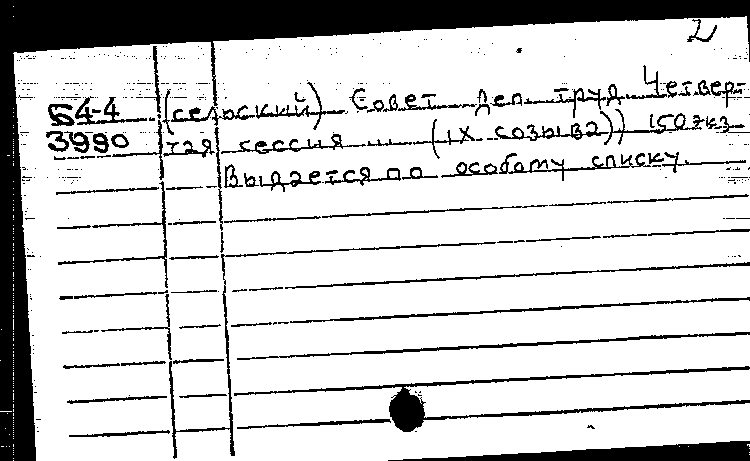 2
Б4-4 (сельский) Совет деп. труд. Четвер-
3990 тая сессия ... (IX созыва)) 150 экз
Выдается по особому списку.